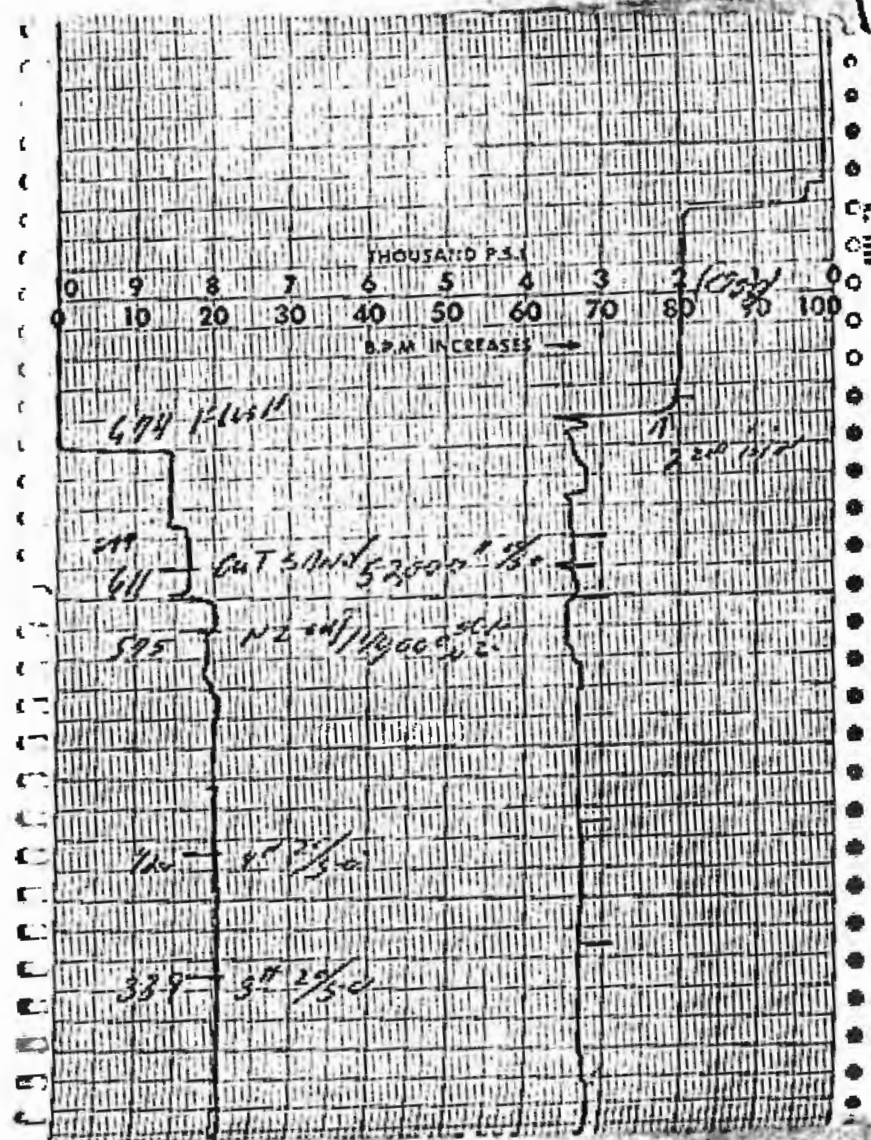 THOUSAND P.S.I
10 9 8 7 6 5 4 3 2 1 0
0 10 20 30 40 50 60 70 80 90 100
B.P.M INCREASES →
674 Flush
611 CUT SAND/52000# 20/50
575 N2 cut/
4# 20/50
339 3# 20/50